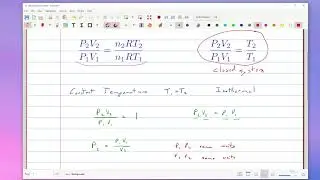 P₂V₂ / P₁V₁ = n₂RT₂ / n₁RT₁
P₂V₂ / P₁V₁ = T₂ / T₁
closed system
Constant Temperature T₁=T₂ Isothermal
P₂V₂ / P₁V₁ = 1
P₂V₂ = P₁V₁
P₂ = P₁V₁ / V₂
P₁ P₂ same units
V₁ V₂ same units